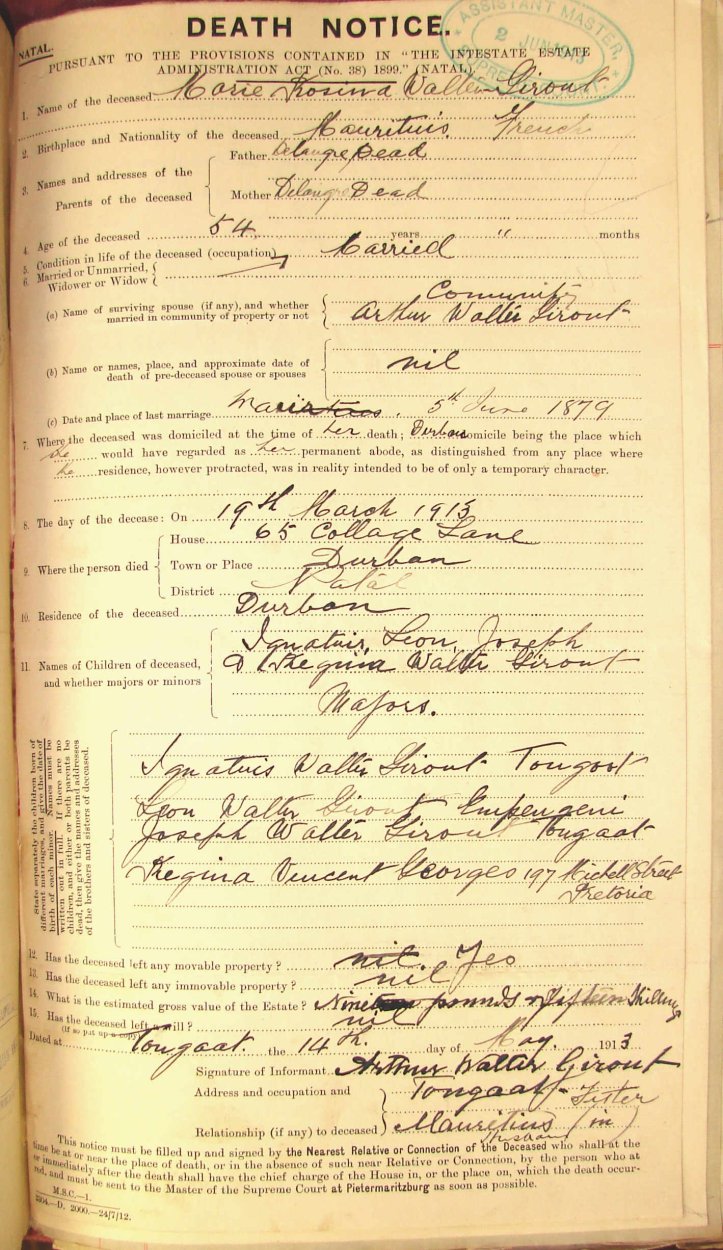 DEATH NOTICE.
NATAL.
ASSISTANT MASTER,
2 JUN
PURSUANT TO THE PROVISIONS CONTAINED IN "THE INTESTATE ESTATE
ADMINISTRATION ACT (No. 38) 1899." (NATAL).
1. Name of the deceased Marie Rosina Walter Girout
2. Birthplace and Nationality of the deceased Mauritius French
3. Names and addresses of the Parents of the deceased
Father Delangre Dead
Mother Delangre Dead
4. Age of the deceased 54 years " months
5. Condition in life of the deceased (occupation)
6. Married or Unmarried, Widower or Widow Married
(a) Name of surviving spouse (if any), and whether married in community of property or not
Comunity
Arthur Walter Girout
(b) Name or names, place, and approximate date of death of pre-deceased spouse or spouses
nil
(c) Date and place of last marriage Mauritius. 5th June 1879
7. Where the deceased was domiciled at the time of her death; Durban domicile being the place which
she would have regarded as her permanent abode, as distinguished from any place where
he residence, however protracted, was in reality intended to be of only a temporary character.
8. The day of the decease: On 19th March 1913
9. Where the person died
House 65 Collage Lane
Town or Place Durban
District Natal
10. Residence of the deceased Durban
11. Names of Children of deceased, and whether majors or minors
Ignatuis, Leon, Joseph
& Regina Walter Girout
Majors.
State separately the children born of different marriages, and give the date of birth of each minor. Names must be written out in full. If there are no children, and either or both parents be dead, then give the names and addresses of the brothers and sisters of deceased.
Ignatuis Walter Girout Tongaat
Leon Walter Girout Empengeni
Joseph Walter Girout Tongaat
Regina Vincent Georges 197 Michell Street
Pretoria
12. Has the deceased left any movable property? nil Yes
13. Has the deceased left any immovable property? nil
14. What is the estimated gross value of the Estate? Nine pounds & Fifteen Shillings
15. Has the deceased left a will? nil
(If so put up a copy)
Dated at Tongaat. the 14th. day of May. 1913
Signature of Informant Arthur Walter Girout
Address and occupation and Tongaat
Relationship (if any) to deceased Mauritius
husband
This notice must be filled up and signed by the Nearest Relative or Connection of the Deceased who shall at the
time be at or near the place of death, or in the absence of such near Relative or Connection, by the person who at
or immediately after the death shall have the chief charge of the House in, or the place on, which the death occur-
red, and must be sent to the Master of the Supreme Court at Pietermaritzburg as soon as possible.
M.S.C.—1.
D. 2000.—24/7/12.